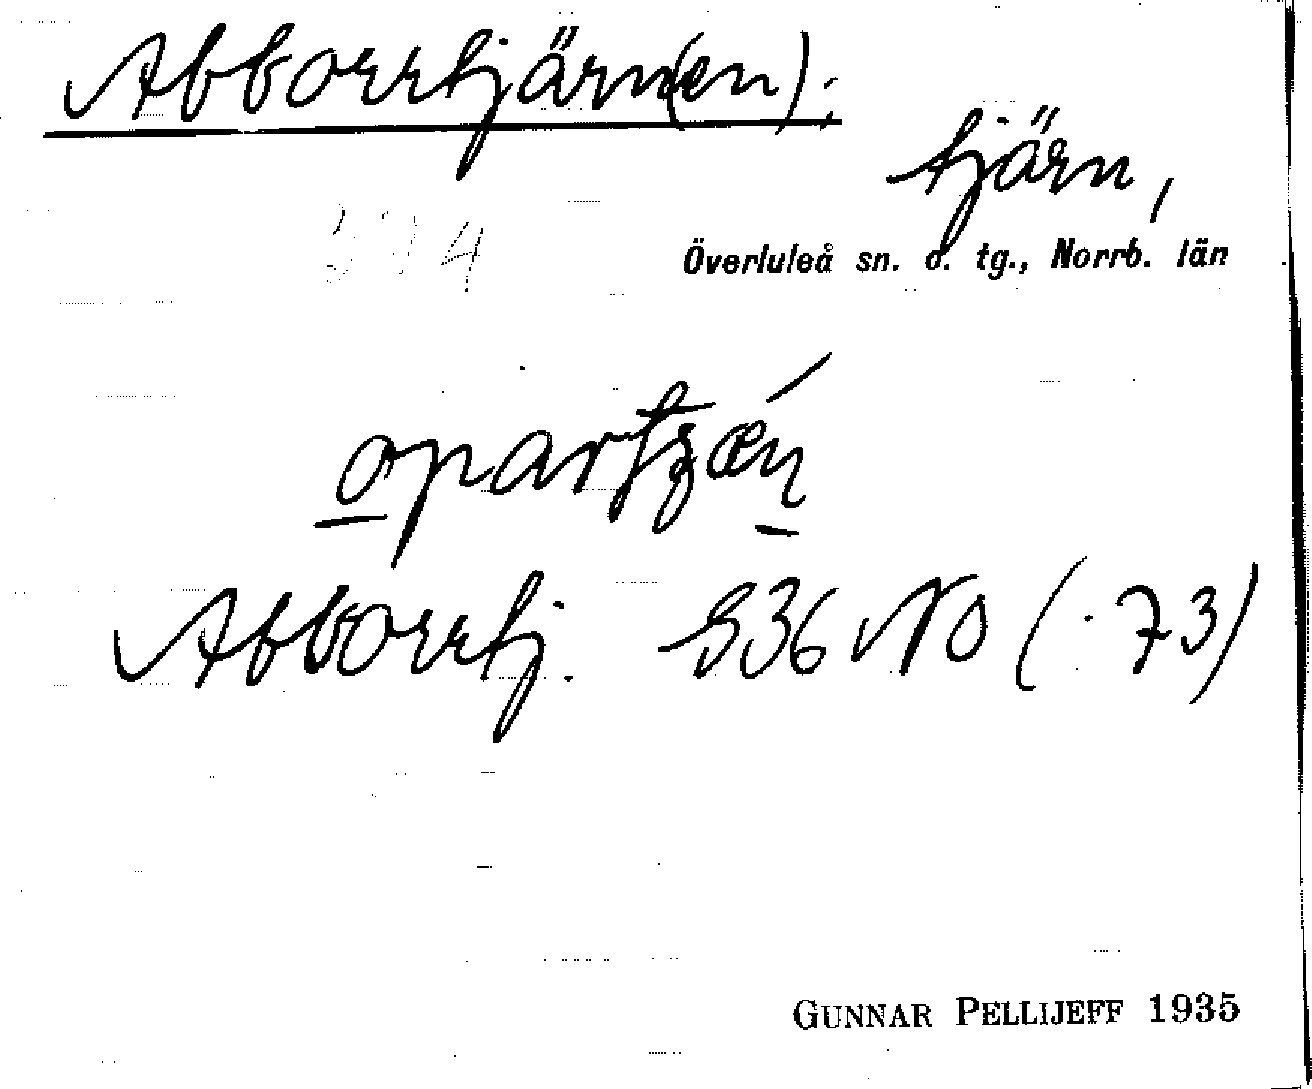 Abborrtjärn(en):
tjärn,
Överluleå sn. o. tg., Norrb. län
Abborrtj. S36 NO (: 73)
GUNNAR PELLIJEFF 1935